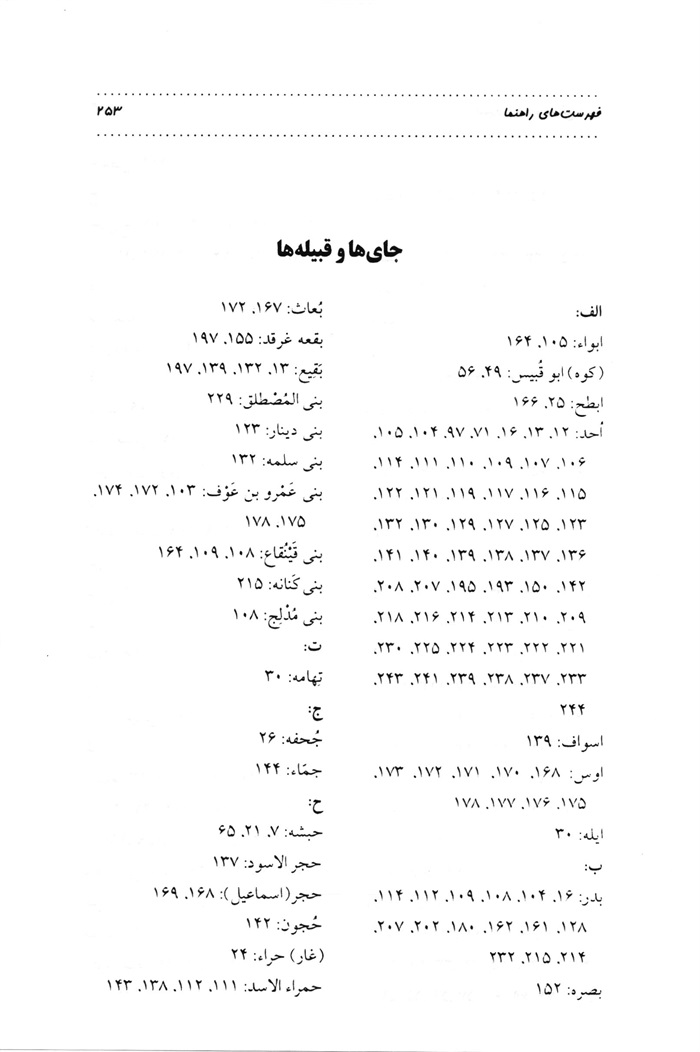 فهرست‌های راهنما ۲۵۳
جای‌ها و قبیله‌ها
الف:
ابواء: ۱۰۵، ۱۶۴
(کوه) ابو قُبیس: ۴۹، ۵۶
ابطح: ۲۵، ۱۶۶
اُحد: ۱۲، ۱۳، ۱۶، ۷۱، ۹۷، ۱۰۴، ۱۰۵،
۱۰۶، ۱۰۷، ۱۰۹، ۱۱۰، ۱۱۱، ۱۱۴،
۱۱۵، ۱۱۶، ۱۱۷، ۱۱۹، ۱۲۱، ۱۲۲،
۱۲۳، ۱۲۵، ۱۲۷، ۱۲۹، ۱۳۰، ۱۳۲،
۱۳۶، ۱۳۷، ۱۳۸، ۱۳۹، ۱۴۰، ۱۴۱،
۱۴۲، ۱۵۰، ۱۹۳، ۱۹۵، ۲۰۷، ۲۰۸،
۲۰۹، ۲۱۰، ۲۱۳، ۲۱۴، ۲۱۶، ۲۱۸،
۲۲۱، ۲۲۲، ۲۲۳، ۲۲۴، ۲۲۵، ۲۳۰،
۲۳۳، ۲۳۷، ۲۳۸، ۲۳۹، ۲۴۱، ۲۴۳،
۲۴۴
اسواف: ۱۳۹
اوس: ۱۶۸، ۱۷۰، ۱۷۱، ۱۷۲، ۱۷۳،
۱۷۵، ۱۷۶، ۱۷۷، ۱۷۸
ایله: ۳۰
ب:
بدر: ۱۶، ۱۰۴، ۱۰۸، ۱۰۹، ۱۱۲، ۱۱۴،
۱۲۸، ۱۶۱، ۱۶۲، ۱۸۰، ۲۰۲، ۲۰۷،
۲۱۴، ۲۱۵، ۲۳۲
بصره: ۱۵۲
بُعاث: ۱۶۷، ۱۷۲
بقعه غرقد: ۱۵۵، ۱۹۷
بَقِیع: ۱۳، ۱۳۲، ۱۳۹، ۱۹۷
بنی المُصْطلق: ۲۲۹
بنی دینار: ۱۲۳
بنی سلمه: ۱۳۲
بنی عَمْرو بن عَوْف: ۱۰۳، ۱۷۲، ۱۷۴،
۱۷۵، ۱۷۸
بنی قَیْنُقاع: ۱۰۸، ۱۰۹، ۱۶۴
بنی کَنانه: ۲۱۵
بنی مُدْلِج: ۱۰۸
ت:
تِهامه: ۳۰
ج:
جُحفه: ۲۶
جمّاء: ۱۴۴
ح:
حبشه: ۷، ۲۱، ۶۵
حجر الاسود: ۱۳۷
حجر(اسماعیل): ۱۶۸، ۱۶۹
حُجون: ۱۴۲
(غار) حراء: ۲۴
حمراء الاسد: ۱۱۱، ۱۱۲، ۱۳۸، ۱۴۳